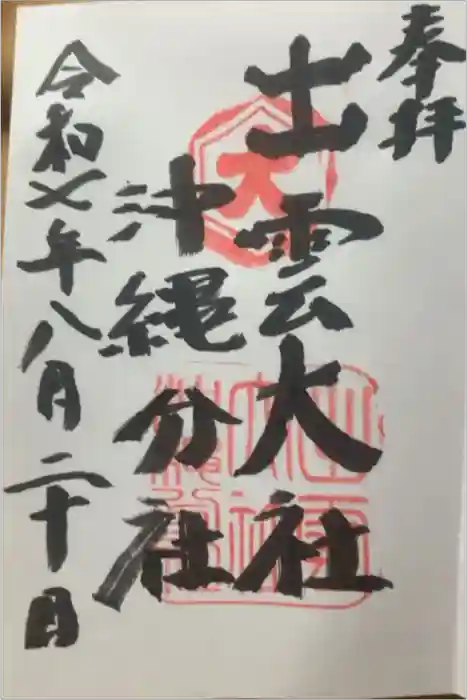 奉拝
出雲大社
沖縄分社
令和七年八月二十日
大